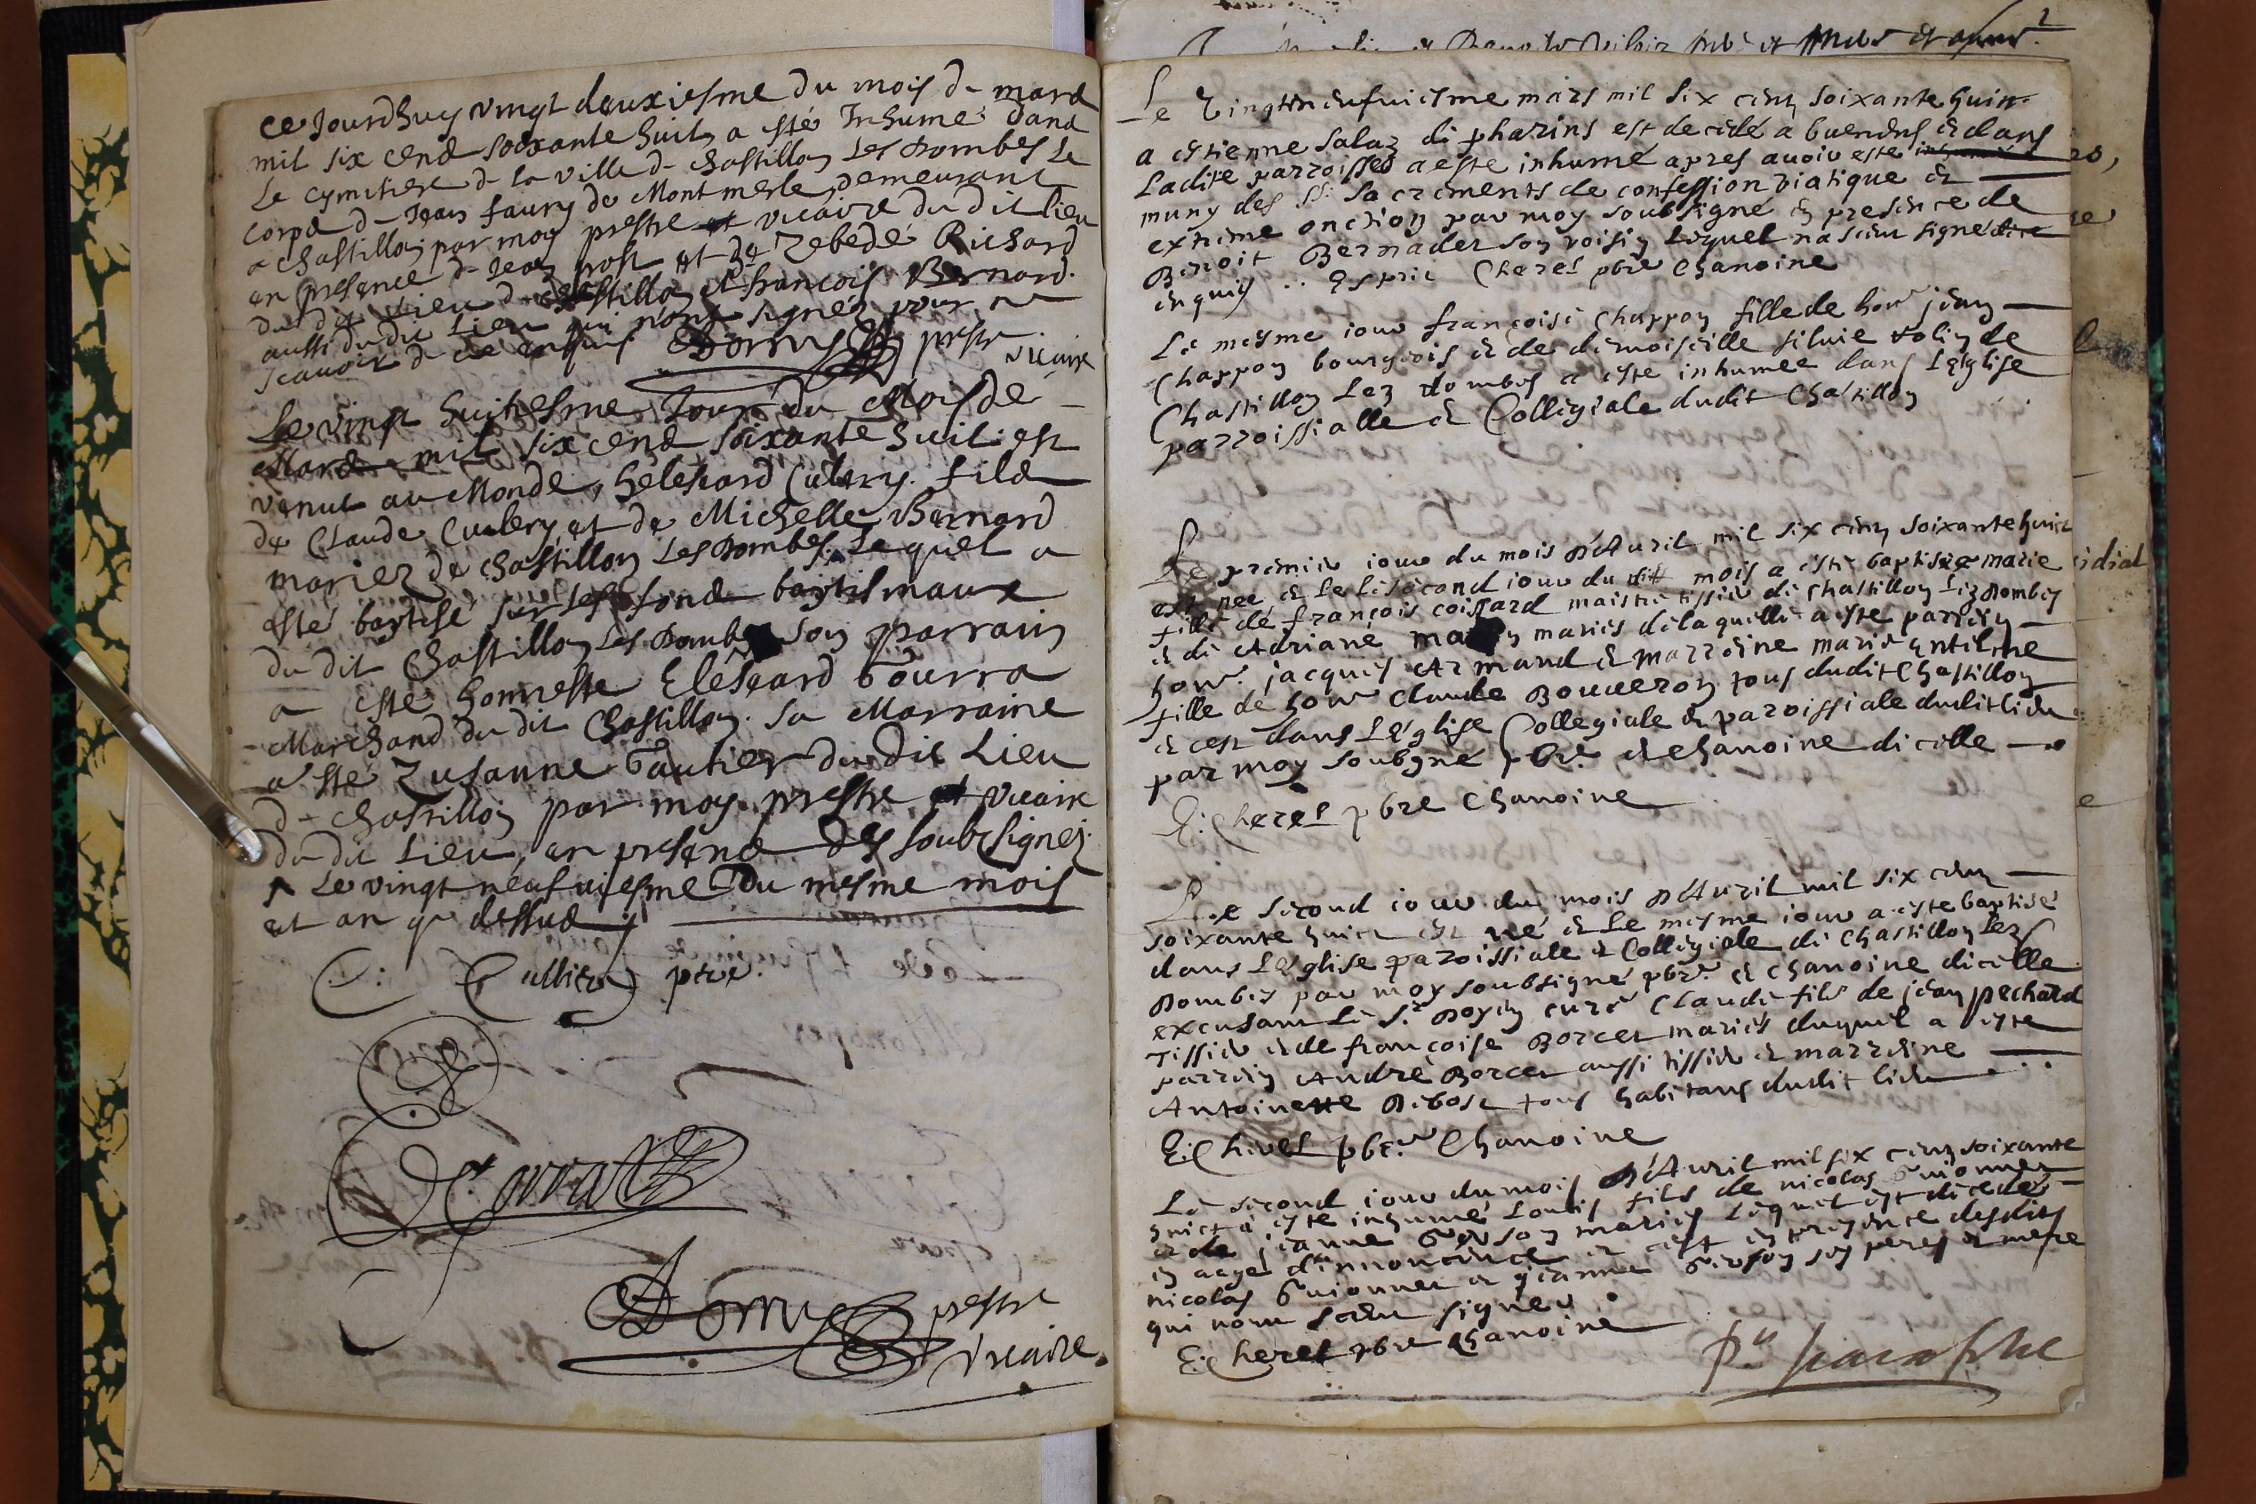 ce Jourdhuy vingt deuxiesme du mois de mard
mil six cend soixante huit, a esté Inhumé dand
Le cymitiere de la ville de chastillon Les Dombes Le
corpd de Jean faury de Montmerle, demeurant
a chastillon par moy prestre et vicaire du dit lieu
en presence de Jean prost et de Zebedé Richard
du dit Lieu de chastillon et francois Bernard
aussi du dit Lieu qui n'ont signéz pour ne
scavoir de ce enquis Dornus prestre
vicaire
Le vingt huitiesme Jour du Mois de
Mard mil six cend soixante huit est
venut au Monde, héléséard Cubery fild
de Claude Cubery et de Michelle Bernard
mariez de chastillon Les Dombes. Lequel a
esté baptisé sur Les fond baptismaux
du dit Chastillon Les Dombes son parrain
a esté honneste Eléséard Tourra
Marchand du dit Chastillon. Sa Marraine
a esté Zusanne Gautier du dit Lieu
de chastillon par moy prestre et vicaire
du dit Lieu, en presend des soubsignez
Le vingt neufviesme du mesme mois
et an que dessud
C: Cullier ptre.
Dornus prestre
vicaire
2
Le Vingtneufuiesme mars mil six cent soixante huit
a estienne Salaz de pharins est decedé a buenens et dans
Ladite parroisse a este inhumé apres auoir este
muny des SS. Sacrements de confession viatique et
extreme onction par moy soubsigné en presence de
Benoit Bernader son voisin Lequel na sceu signé
enquis .. Esprit Cheret pbre Chanoine
Le mesme iour françoise Chappon fille de hon.r jean
Chappon bourgeois et de demoiselle siluie tolin de
Chastillon Lez dombes a este inhumee dans LEglise
parroissialle et Collegiale dudit Chatillon
Le premier iour du mois d'Auril mil six cent soixante huict
est nee et Le second iour du dit mois a esté baptisée marie
fille de françois coissard maistre tissier de Chastillon Lez Dombes
et de Adriane mariés de laquelle a este parrein
hon.r jacques Armand et marreine marie Antelme
fille de hon.r Claude Bouueron tous dudit Chastillon
et cest dans LEglise Collegiale et paroissiale dudit lieu
par moy soubsigné pbre. et Chanoine dicelle
E: Cheret pbre Chanoine
Le second iour du mois d'Auril mil six cent
soixante huict est né et Le mesme iour a este baptisé
dans LEglise paroissiale et Collegiale de Chastillon Lez
Dombes par moy soubsigné pbre. et Chanoine dicelle
excusant Le Sr. Doyen curé Claude fils de jean pechard
Tissier et de françoise Borcet mariés duquel a este
parrein André Borcet aussi tissier et marreine
Antoinette Debost tous habitans dudit lieu
E: Cheret pbre. Chanoine
Le second iour du mois d'Auril mil six cent soixante
huict a este inhumé Louis fils de nicolas Guionnet
et de jeanne mariés Lequel est decedé
en aage dinnocence et cest en presence desdits
nicolas Guionnet et jeanne ses peres et mere
qui nont sceu signer.
E: Cheret pbre Chanoine